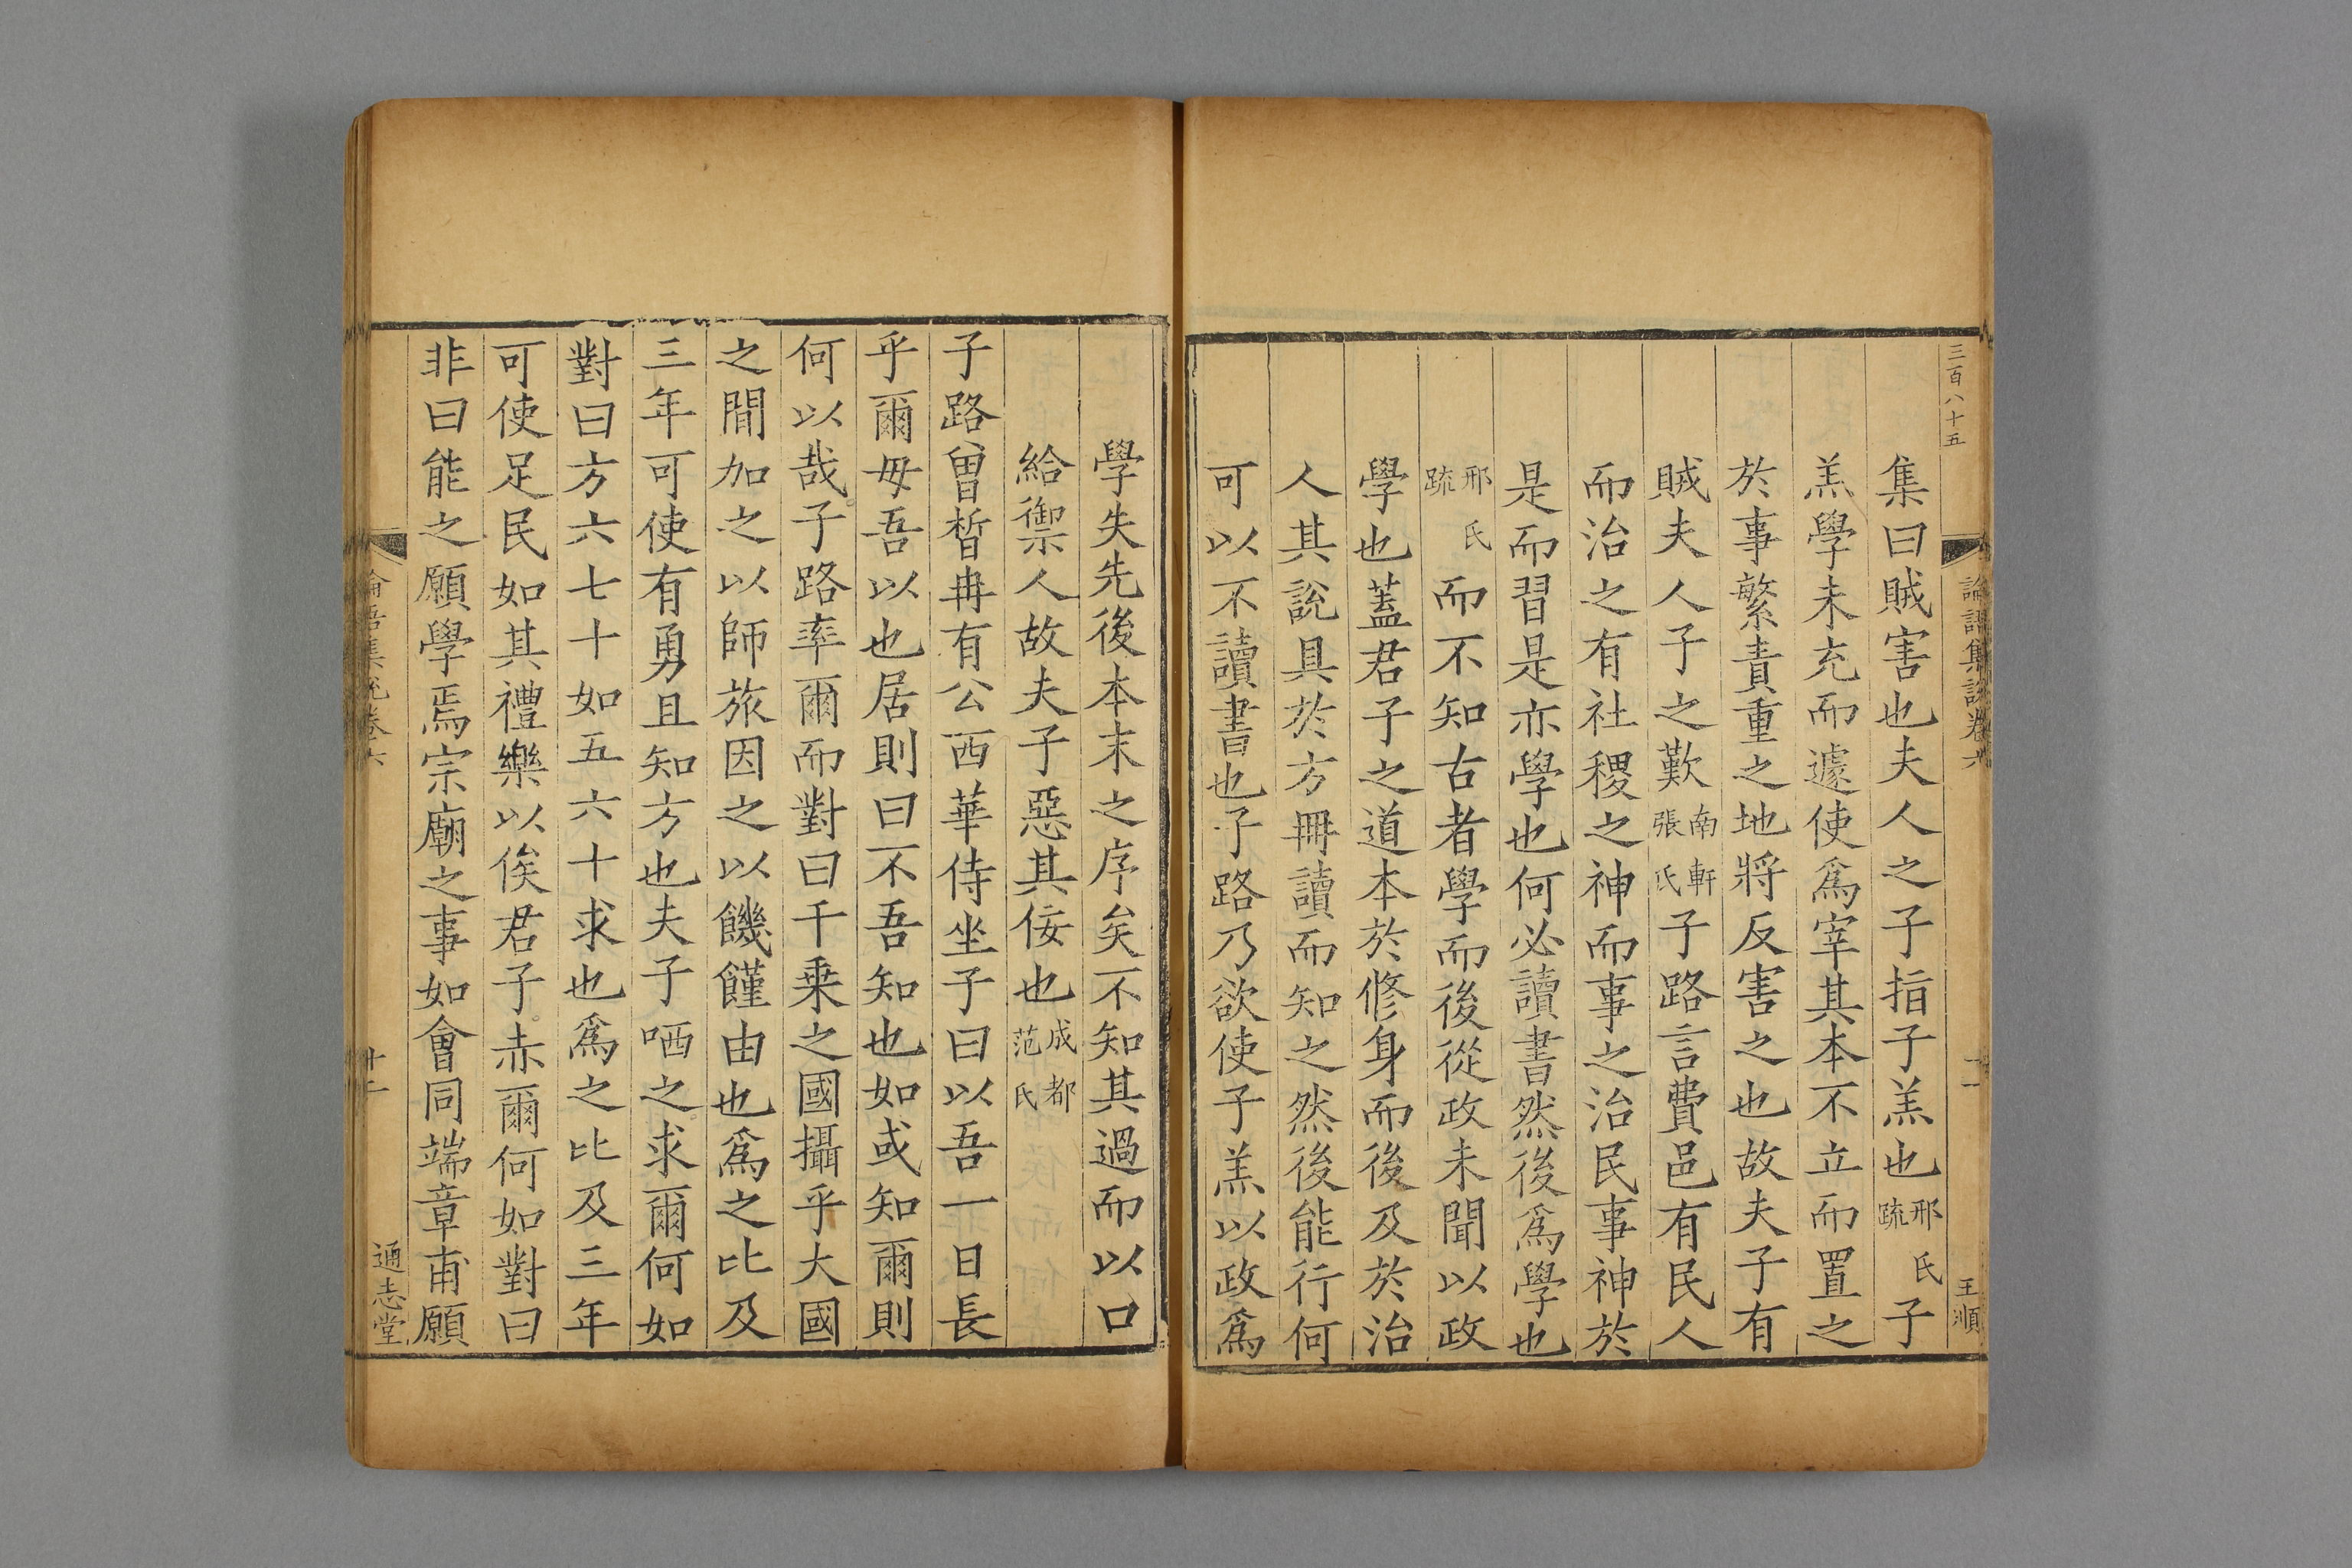 三百八十五
論語集說卷六
王順
集曰賊害也夫人之子指子羔也邢氏疏子
羔學未充而遽使爲宰其本不立而置之
於事繁責重之地將反害之也故夫子有
賊夫人子之歎南軒張氏子路言費邑有民人
而治之有社稷之神而事之治民事神於
是而習是亦學也何必讀書然後爲學也
邢氏疏而不知古者學而後從政未聞以政
學也蓋君子之道本於修身而後及於治
人其說具於方冊讀而知之然後能行何
可以不讀書也子路乃欲使子羔以政爲
學失先後本末之序矣不知其過而以口
給禦人故夫子惡其佞也成都范氏
子路曾晳冉有公西華侍坐子曰以吾一日長
乎爾毋吾以也居則曰不吾知也如或知爾則
何以哉子路率爾而對曰千乗之國攝乎大國
之間加之以師旅因之以饑饉由也爲之比及
三年可使有勇且知方也夫子哂之求爾何如
對曰方六七十如五六十求也爲之比及三年
可使足民如其禮樂以俟君子赤爾何如對曰
非曰能之願學焉宗廟之事如會同端章甫願
論語集說卷六
十二
通志堂